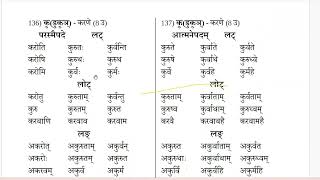 136) कृ(डुकृञ्) - करणे (8 उ)
परस्मैपदे लट्
करोति कुरुतः कुर्वन्ति
करोषि कुरुथः कुरुथ
करोमि कुर्वः कुर्मः
लोट्
करोतु कुरुताम् कुर्वन्तु
कुरु कुरुतम् कुरुत
करवाणि करवाव करवाम
लङ्
अकरोत् अकुरुताम् अकुर्वन्
अकरोः अकुरुतम् अकुरुत
अकरवम् अकुर्व अकुर्म
137) कृ(डुकृञ्) - करणे (8 उ)
आत्मनेपदम् लट्
कुरुते कुर्वाते कुर्वते
कुरुषे कुर्वाथे कुरुध्वे
कुर्वे कुर्वहे कुर्महे
लोट्
कुरुताम् कुर्वाताम् कुर्वताम्
कुरुष्व कुर्वाथाम् कुरुध्वम्
करवै करवावहै करवामहै
लङ्
अकुरुत अकुर्वाताम् अकुर्वत
अकुरुथाः अकुर्वाथाम् अकुरुध्वम्
अकुर्वि अकुर्वहि अकुर्महि